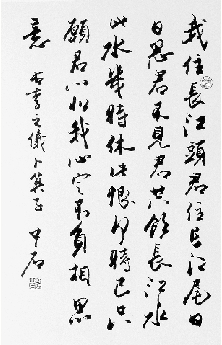 我住長江頭君住長江尾日
日思君不見君共飲長江水
此水幾時休此恨何時已只
願君心似我心定不負相思
意 右李之儀卜算子 中石